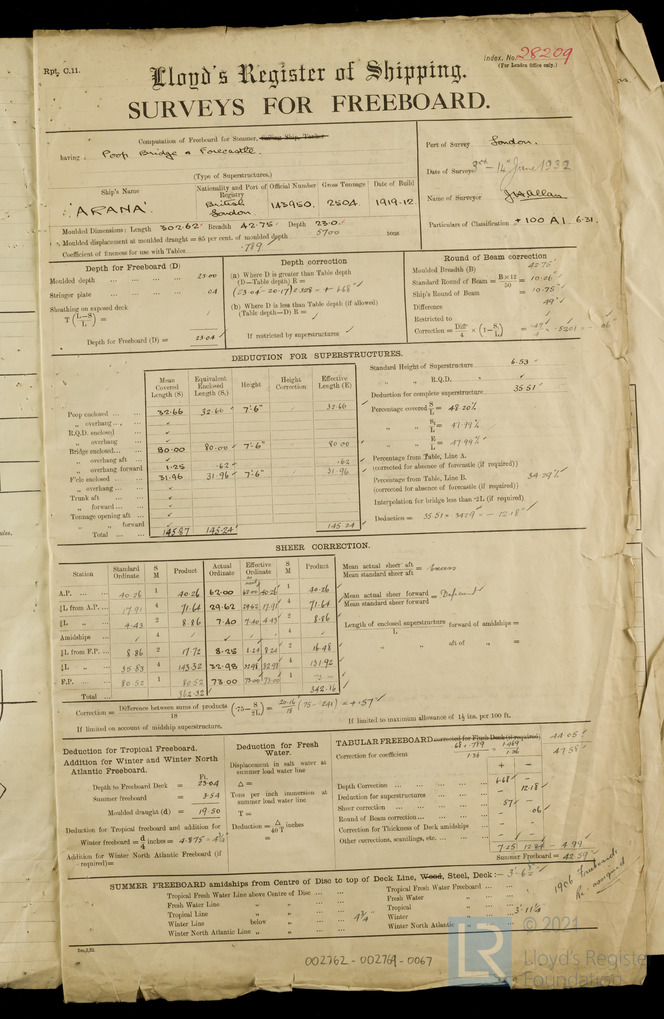 Rpt. C.11.
Index. No. 28209
(For London Office only.)
Lloyd's Register of Shipping.
SURVEYS FOR FREEBOARD.
Computation of Freeboard for Steamer, Sailing Ship, Tanker
having Poop Bridge & Forecastle.
(Type of Superstructures.)
Port of Survey London.
Date of Survey 3rd - 14th June 1932
Name of Surveyor
Particulars of Classification + 100 A1. 6-31.
Ship's Name Nationality and Port of Registry Official Number Gross Tonnage Date of Build
"ARANA" British London 143950. 2504. 1919-12
Moulded Dimensions: Length 302.62 Breadth 42.75 Depth 23.0
Moulded displacement at moulded draught = 85 per cent. of moulded depth 5700 tons
Coefficient of fineness for use with Tables .789
Depth for Freeboard (D)
Moulded depth 23.00
Stringer plate .04
Sheathing on exposed deck
T (L-S/L) =
Depth for Freeboard (D) = 23.04
Depth correction
(a) Where D is greater than Table depth
(D—Table depth) R =
(23.04-20.17) 2.328 = + 6.68
(b) Where D is less than Table depth (if allowed)
(Table depth—D) R =
If restricted by superstructures
Round of Beam correction
Moulded Breadth (B) 42.75
Standard Round of Beam = B×12/50 = 10.26
Ship's Round of Beam = 10.75
Difference .49
Restricted to
Correction = Diff/4 × (1-S1/L) = .49/4 × .5201 = - .06
DEDUCTION FOR SUPERSTRUCTURES.
Mean Covered Length (S) Equivalent Enclosed Length (S1) Height Height Correction Effective Length (E)
Poop enclosed 32.66 32.66 7'-6" 32.66
" overhang
R.Q.D. enclosed
" overhang
Bridge enclosed 80.00 80.00 7'-6" 80.00
" overhang aft
" overhang forward 1.25 .62 .62
F'cle enclosed 31.96 31.96 7'-6" 31.96
" overhang
Trunk aft
" forward
Tonnage opening aft
" " forward
Total 145.87 145.24 145.24
Standard Height of Superstructure 6.53
" " R.Q.D. "
Deduction for complete superstructure 35.51
Percentage covered S/L = 48.20%
" " S1/L = 47.99%
" " E/L = 47.99%
Percentage from Table, Line A.
(corrected for absence of forecastle (if required))
Percentage from Table, Line B. 34.29%
(corrected for absence of forecastle (if required))
Interpolation for bridge less than .2L (if required)
Deduction = 35.51 × .3429 = - 12.18"
SHEER CORRECTION.
Station Standard Ordinate S M Product Actual Ordinate Effective Ordinate S M Product
A.P. 40.26 1 40.26 62.00 40.26 1 40.26
⅙L from A.P. 17.91 4 71.64 29.62 17.91 4 71.64
⅓L " 4.43 2 8.86 7.40 4.43 2 8.86
Amidships 4 4
⅓L from F.P. 8.86 2 17.72 8.25 8.24 2 16.48
⅙L " 35.83 4 143.32 32.98 32.98 4 131.92
F.P. 80.52 1 80.52 73.00 73.00 1 73
Total 362.32 342.16
Mean actual sheer aft / Mean standard sheer aft = Excess
Mean actual sheer forward / Mean standard sheer forward = Deficient
Length of enclosed superstructure / L forward of amidships =
" " aft of " =
Correction = Difference between sums of products / 18 (.75 - S/2L) = 20.16/18 (.75 - .241) = + .57
If limited on account of midship superstructure.
If limited to maximum allowance of 1½ ins. per 100 ft.
Deduction for Tropical Freeboard.
Addition for Winter and Winter North Atlantic Freeboard.
Ft.
Depth to Freeboard Deck = 23.04
Summer freeboard = 3.54
Moulded draught (d) = 19.50
Deduction for Tropical freeboard and addition for
Winter freeboard = d/4 inches = 4.875 = 4¾"
Addition for Winter North Atlantic Freeboard (if required) =
Deduction for Fresh Water.
Displacement in salt water at summer load water line
Δ =
Tons per inch immersion at summer load water line
T =
Deduction = Δ/40T inches
=
TABULAR FREEBOARD corrected for Flush Deck (if required) 44.05
Correction for coefficient .68 + .789 / 1.36 = 1.469 / 1.36 47.58
+ -
Depth Correction 6.68 -
Deduction for superstructures - 12.18
Sheer correction .57 -
Round of Beam correction - .06
Correction for Thickness of Deck amidships - -
Other corrections, scantlings, etc.
7.25 12.24 - 4.99
Summer Freeboard = 42.59
SUMMER FREEBOARD amidships from Centre of Disc to top of Deck Line, Wood, Steel, Deck:— 3'-6½"
Tropical Fresh Water Line above Centre of Disc
Fresh Water Line " "
Tropical Line " " 4¾"
Winter Line below "
Winter North Atlantic Line " "
Tropical Fresh Water Freeboard
Fresh Water "
Tropical "
Winter " 3'-11¼"
Winter North Atlantic "
1906 Freeboards
Re-assigned
002762-002769-0067
© 2021
LR
Lloyd's Register
Foundation